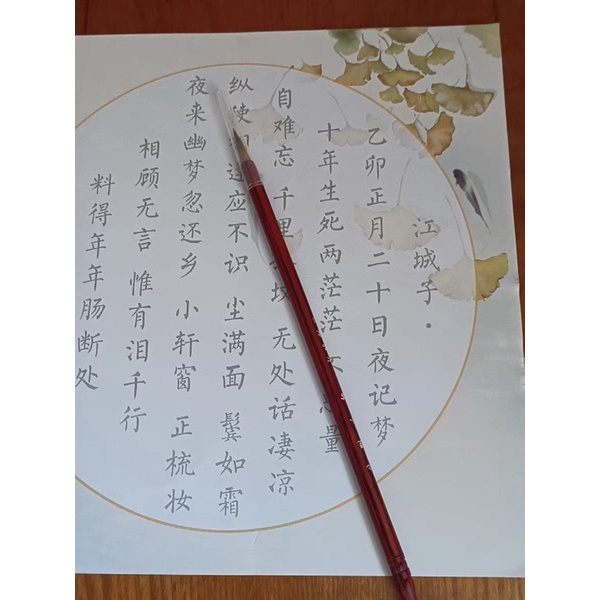 江城子·
乙卯正月二十日夜记梦
十年生死两茫茫 不思量
自难忘 千里孤坟 无处话凄凉
纵使相逢应不识 尘满面 鬓如霜
夜来幽梦忽还乡 小轩窗 正梳妆
相顾无言 惟有泪千行
料得年年肠断处